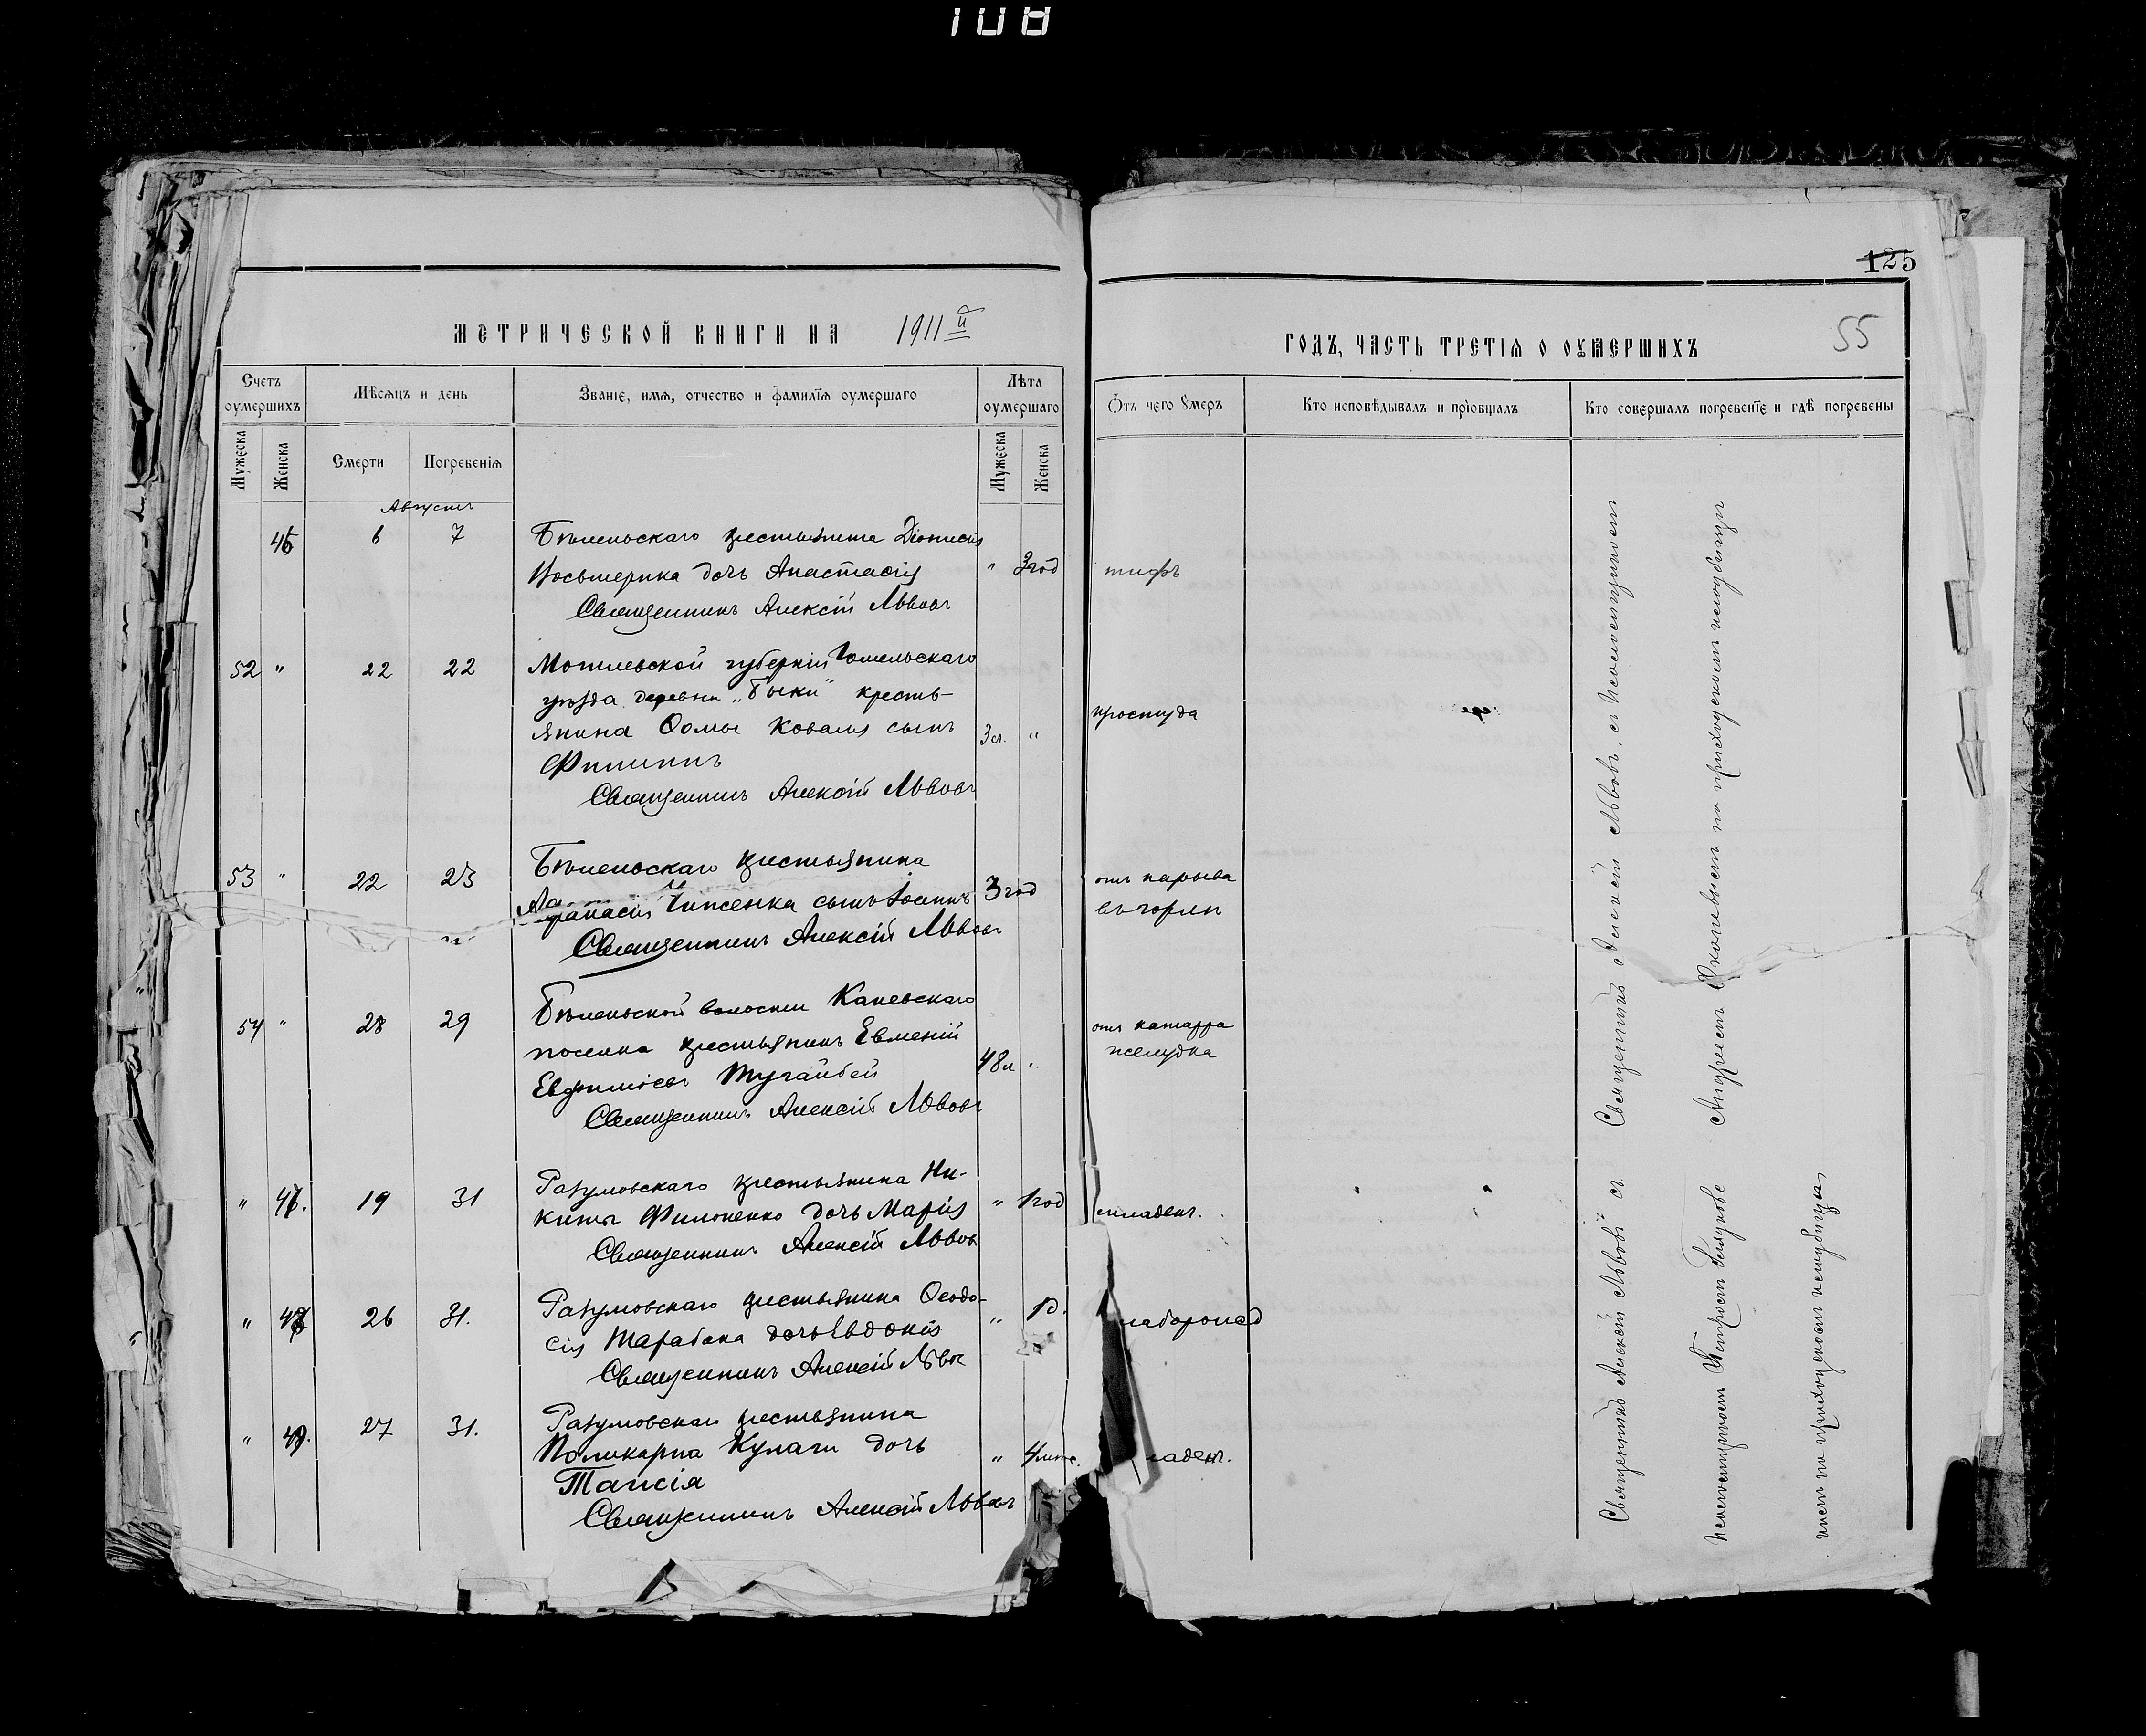 108
125
МЕТРИЧЕСКОЙ КНИГИ НА 1911й
ГОДЪ, ЧАСТЬ ТРЕТІЯ О ОУМЕРШИХЪ
55
Счетъ оумершихъ
Мѣсяцъ и день
Званіе, имя, отчество и фамилія оумершаго
Лѣта оумершаго
Отъ чего умеръ
Кто исповѣдывалъ и пріобщалъ
Кто совершалъ погребеніе и гдѣ погребены
Мужеска
Женска
Смерти
Погребенія
Мужеска
Женска
Августъ
6 7 крестьянина Діонисія
Восьмерика дочь Анастасія " 3 год тифъ
Священникъ Алексій Львовъ
52 " 22 22 Могилевской губерніи Гомельскаго
уѣзда деревни „Быки" кресть-
янина Ѳомы Коваля сынъ " простуда
Филиппъ
Священникъ Алексій Львовъ
53 " 22 23 крестьянина
Аѳанасія сынъ Іоаннъ 3 год отъ нарыва
въ горлѣ
Священникъ Алексій Львовъ
54 " 28 29 волости Каневскаго
поселка крестьянинъ Евменій 48 л " отъ катарра
желудка
Евфиміевъ Тугайбей
Священникъ Алексій Львовъ
" 19 31 Разумовскаго крестьянина Ни-
киты Филоненко дочь Марія " 1 год младен.
Священникъ Алексій Львовъ
" 26 31. Разумовскаго крестьянина Ѳеодо-
сія Тарабана дочь Евдокія "
Священникъ Алексій Львов
" 27 31. Разумовскаго крестьянина
Поликарпа Кулаги дочь " ладен.
Таисія
Священникъ Алексій Львовъ
Священникъ Алексій Львовъ, съ Псаломщикомъ
Андреемъ на приходскомъ кладбищѣ
Священникъ Алексій Львовъ съ
Псаломщикомъ Петромъ
на приходскомъ кладбищѣ